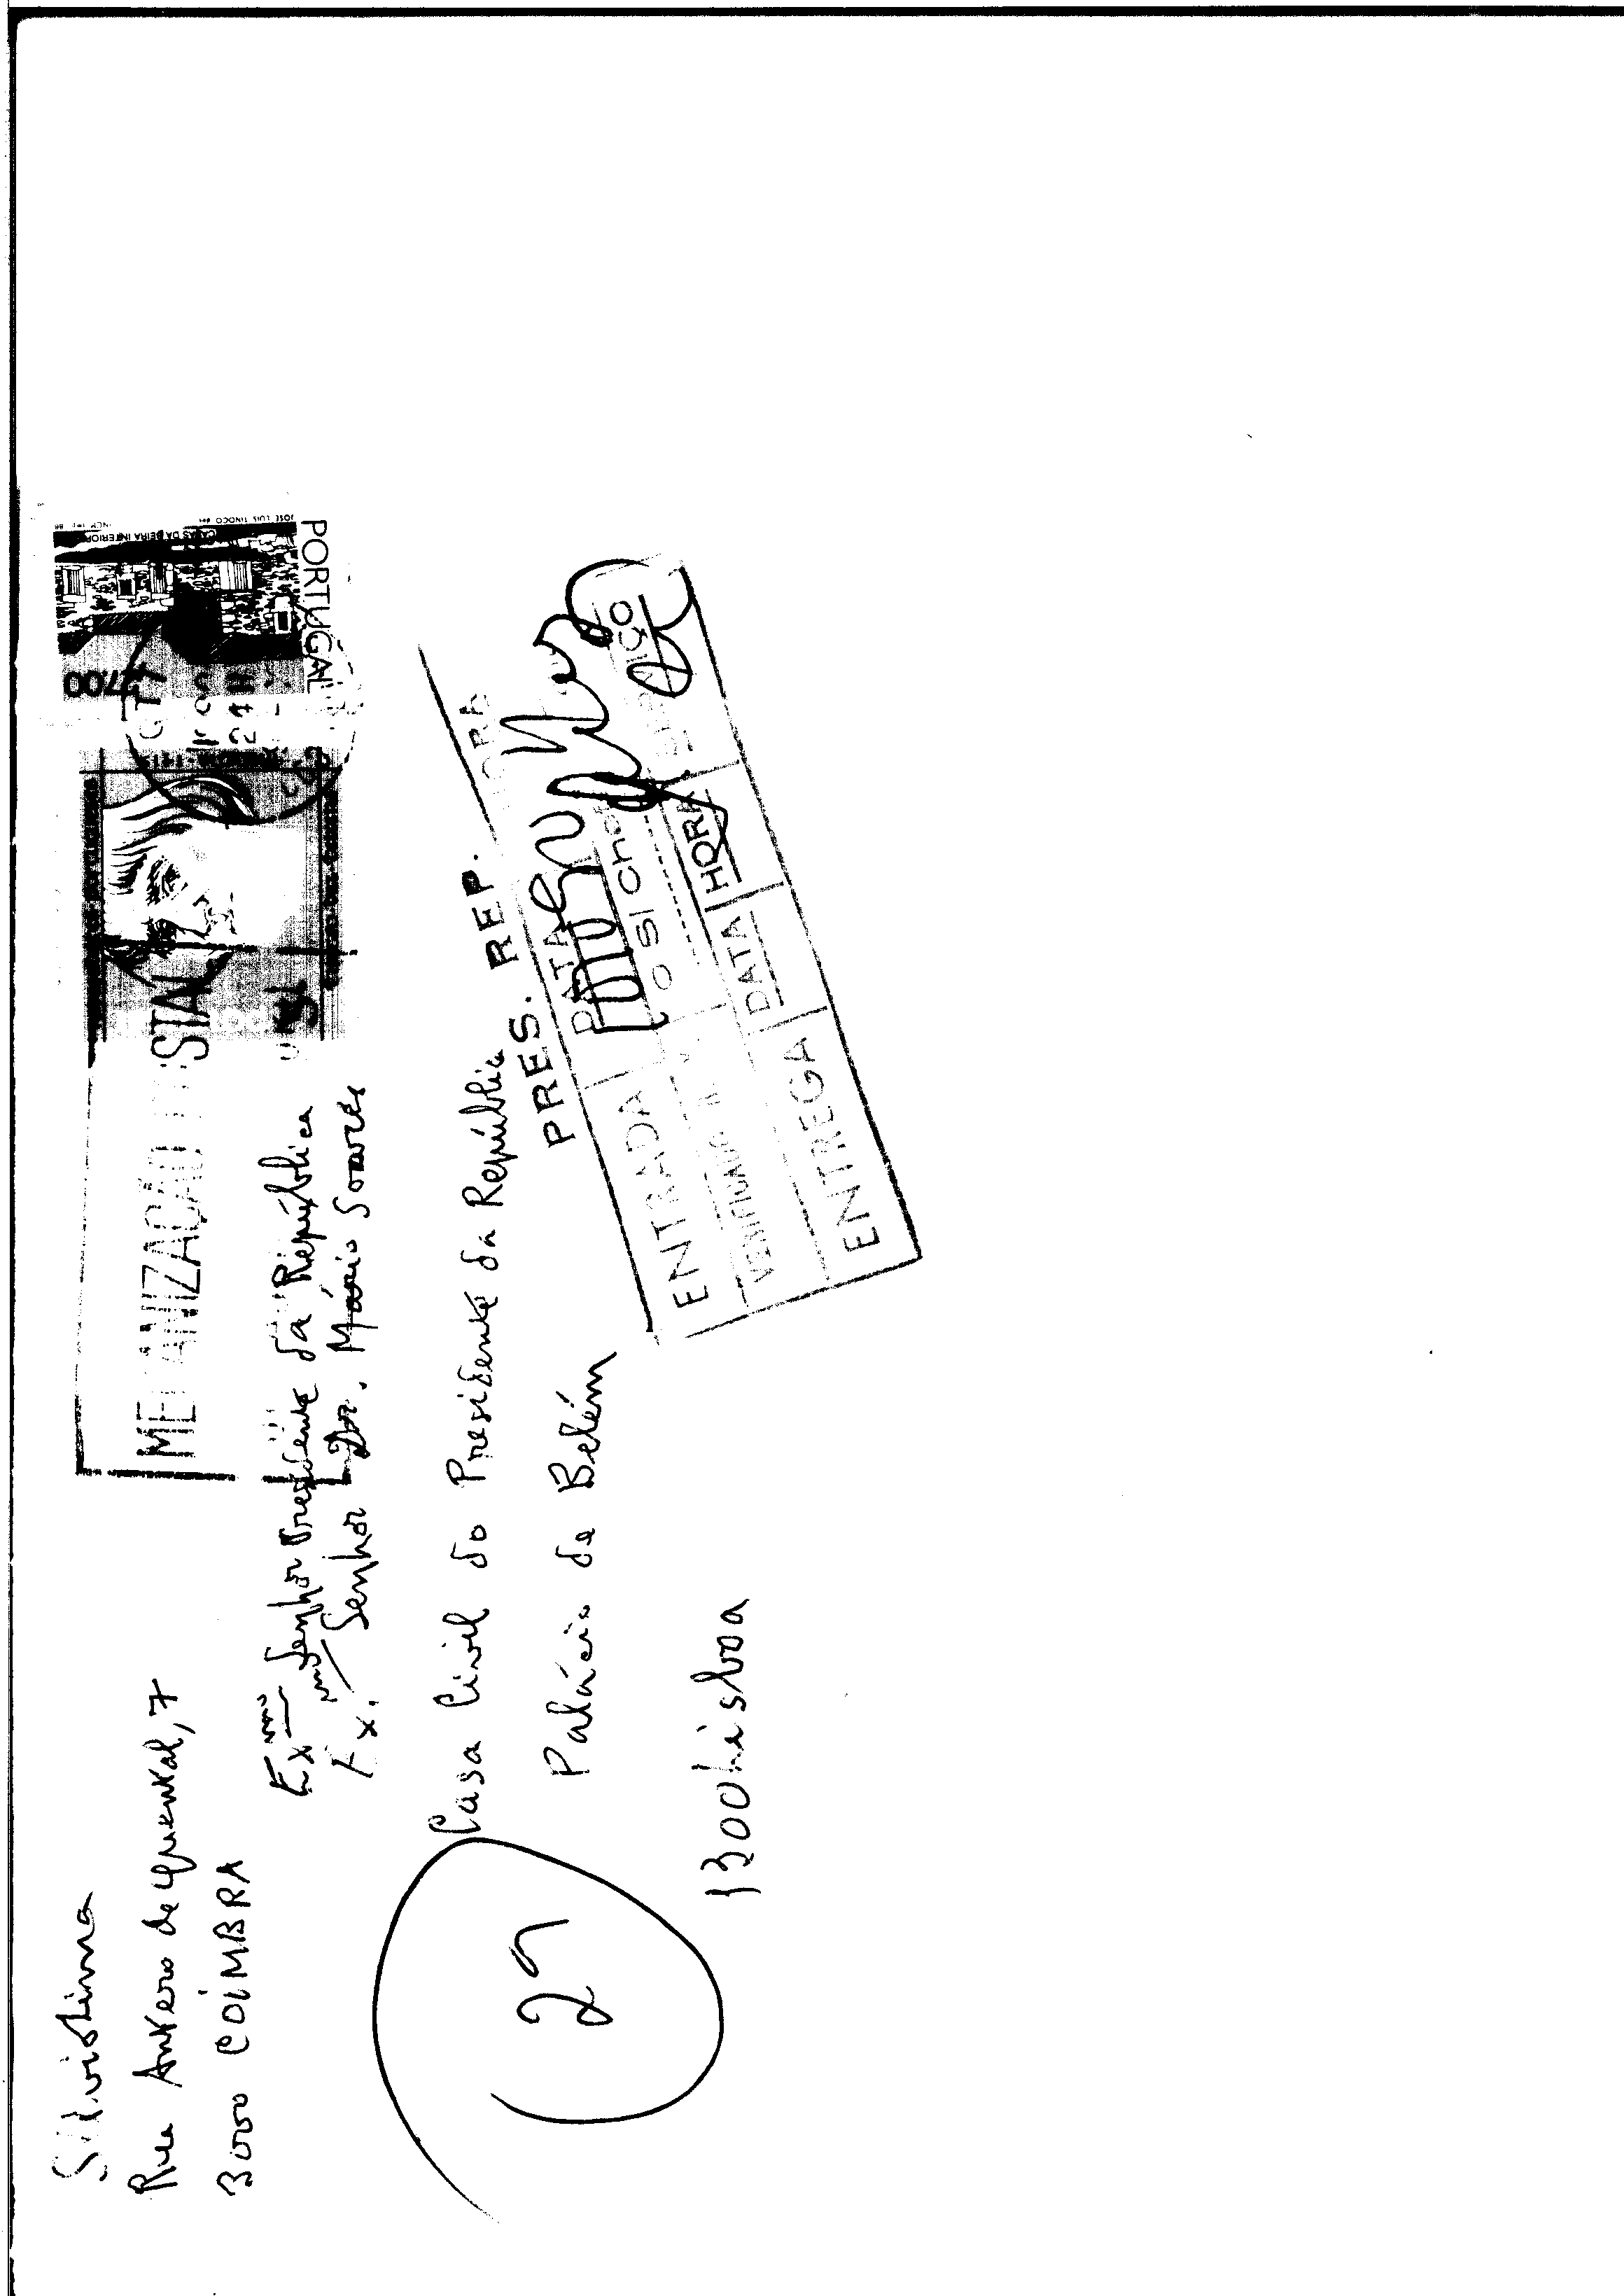 Silvio Lima
Rua Antero de Quental, 7
3000 COIMBRA
MECANIZAÇÃO POSTAL
PORTUGAL
CASAS DA BEIRA INTERIOR
JOSÉ LUIS TINOCO
CTT
Ex.mo Senhor Presidente da República
Ex.mo Senhor Dr. Mário Soares
Casa Civil do Presidente da República
Palácio de Belém
1300 Lisboa
29
PRES. REP.
ENTRADA DATA HORA
VERIFICADO
O S/ Chefe
ENTREGA DATA HORA